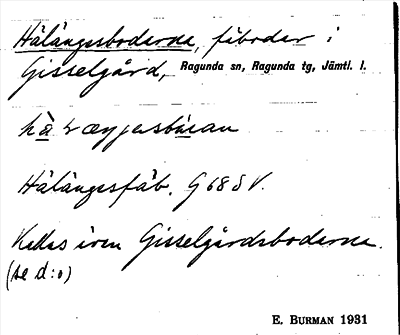 Hälängsbodarna, fäbodar i
Gisselgård, Ragunda sn, Ragunda tg, Jämtl. l.
Hälängesfäb. G 68 S V.
Kallas även Gisselgårdsbodarna.
(se d:o)
E. BURMAN 1931